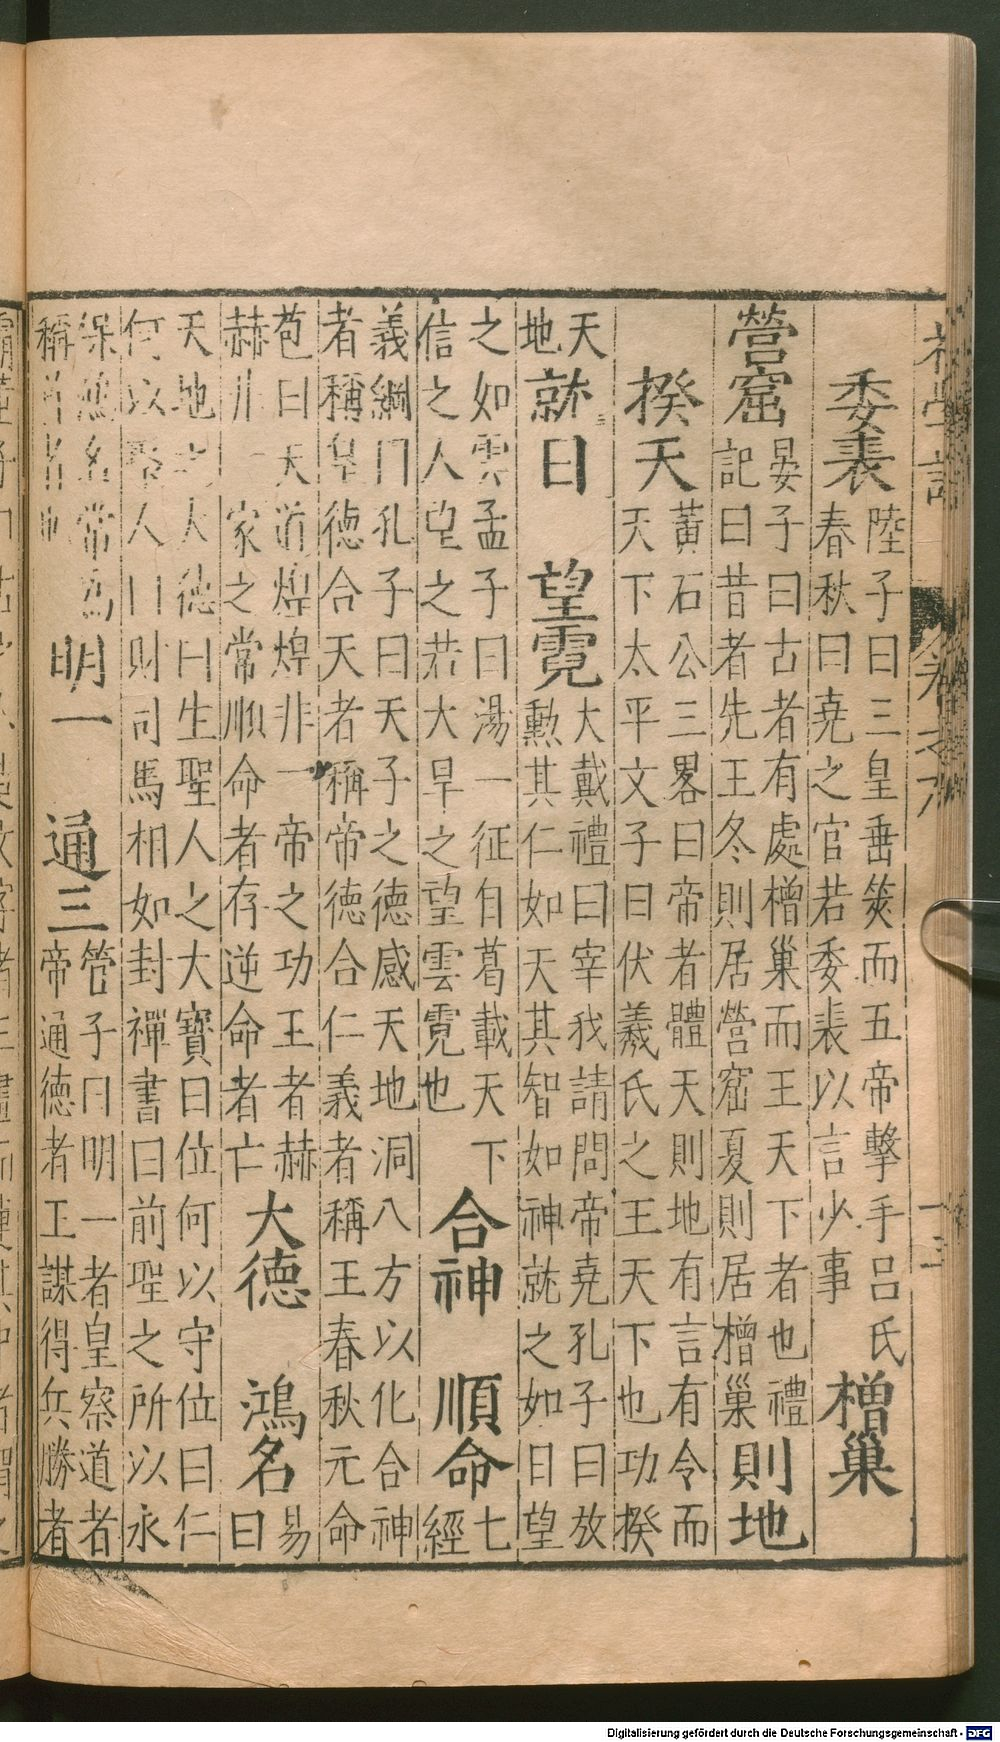 初學記 卷之九
委裘 陸子曰三皇垂筴而五帝擊手呂氏春秋曰堯之官若委裘以言少事 橧巢
營窟 晏子曰古者有處橧巢而王天下者也禮記曰昔者先王冬則居營窟夏則居橧巢 則地
揆天 黃石公三畧曰帝者體天則地有言有令而天下太平文子曰伏羲氏之王天下也功揆
天地 就日 望霓 大戴禮曰宰我請問帝堯孔子曰放勲其仁如天其智如神就之如日望
之如雲孟子曰湯一征自葛載天下信之人望之若大旱之望雲霓也 合神 順命 七經
義綱門孔子曰天子之德感天地洞八方以化合神者稱皇德合天者稱帝德合仁義者稱王春秋元命
苞曰天道煌煌非一帝之功王者赫赫非一家之常順命者存逆命者亡 大德 鴻名 易曰
天地之大德曰生聖人之大寶曰位何以守位曰仁何以聚人曰財司馬相如封禪書曰前聖之所以永
保鴻名常為稱首者 明一 通三 管子曰明一者皇察道者帝通德者王謀得兵勝者
Digitalisierung gefördert durch die Deutsche Forschungsgemeinschaft - DFG